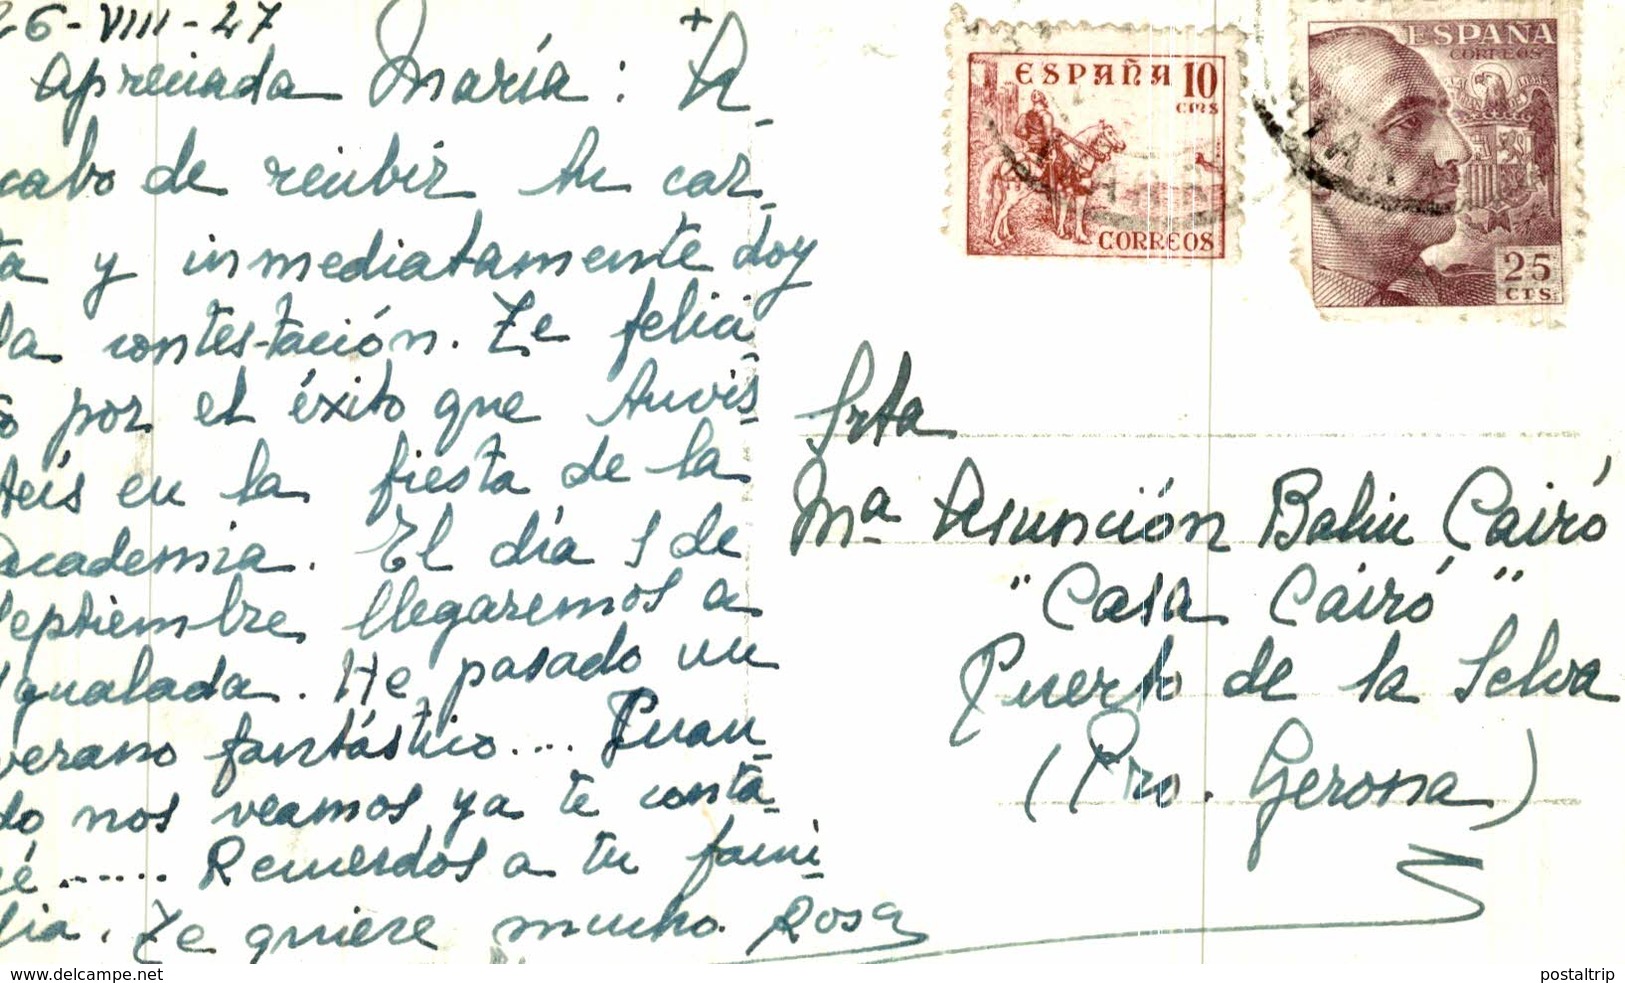 26-VIII-47
+
Apreciada María: A-
cabo de recibir tu car-
ta y inmediatamente doy
la contestación. Te felici-
to por el éxito que tuvis-
teis en la fiesta de la
academia. El día 5 de
Septiembre llegaremos a
Igualada. He pasado un
verano fantástico.... Cuan-
do nos veamos ya te conta-
ré ...... Recuerdos a tu fami-
lia. Te quiere mucho. Rosa
ESPAÑA 10
cms
CORREOS
ESPAÑA
CORREOS
25
CTS
Srta
Mª Asunción Bahiu Cairó
"Casa Cairó"
Puerto de la Selva
(Pro. Gerona)
www.delcampe.net
postaltrip